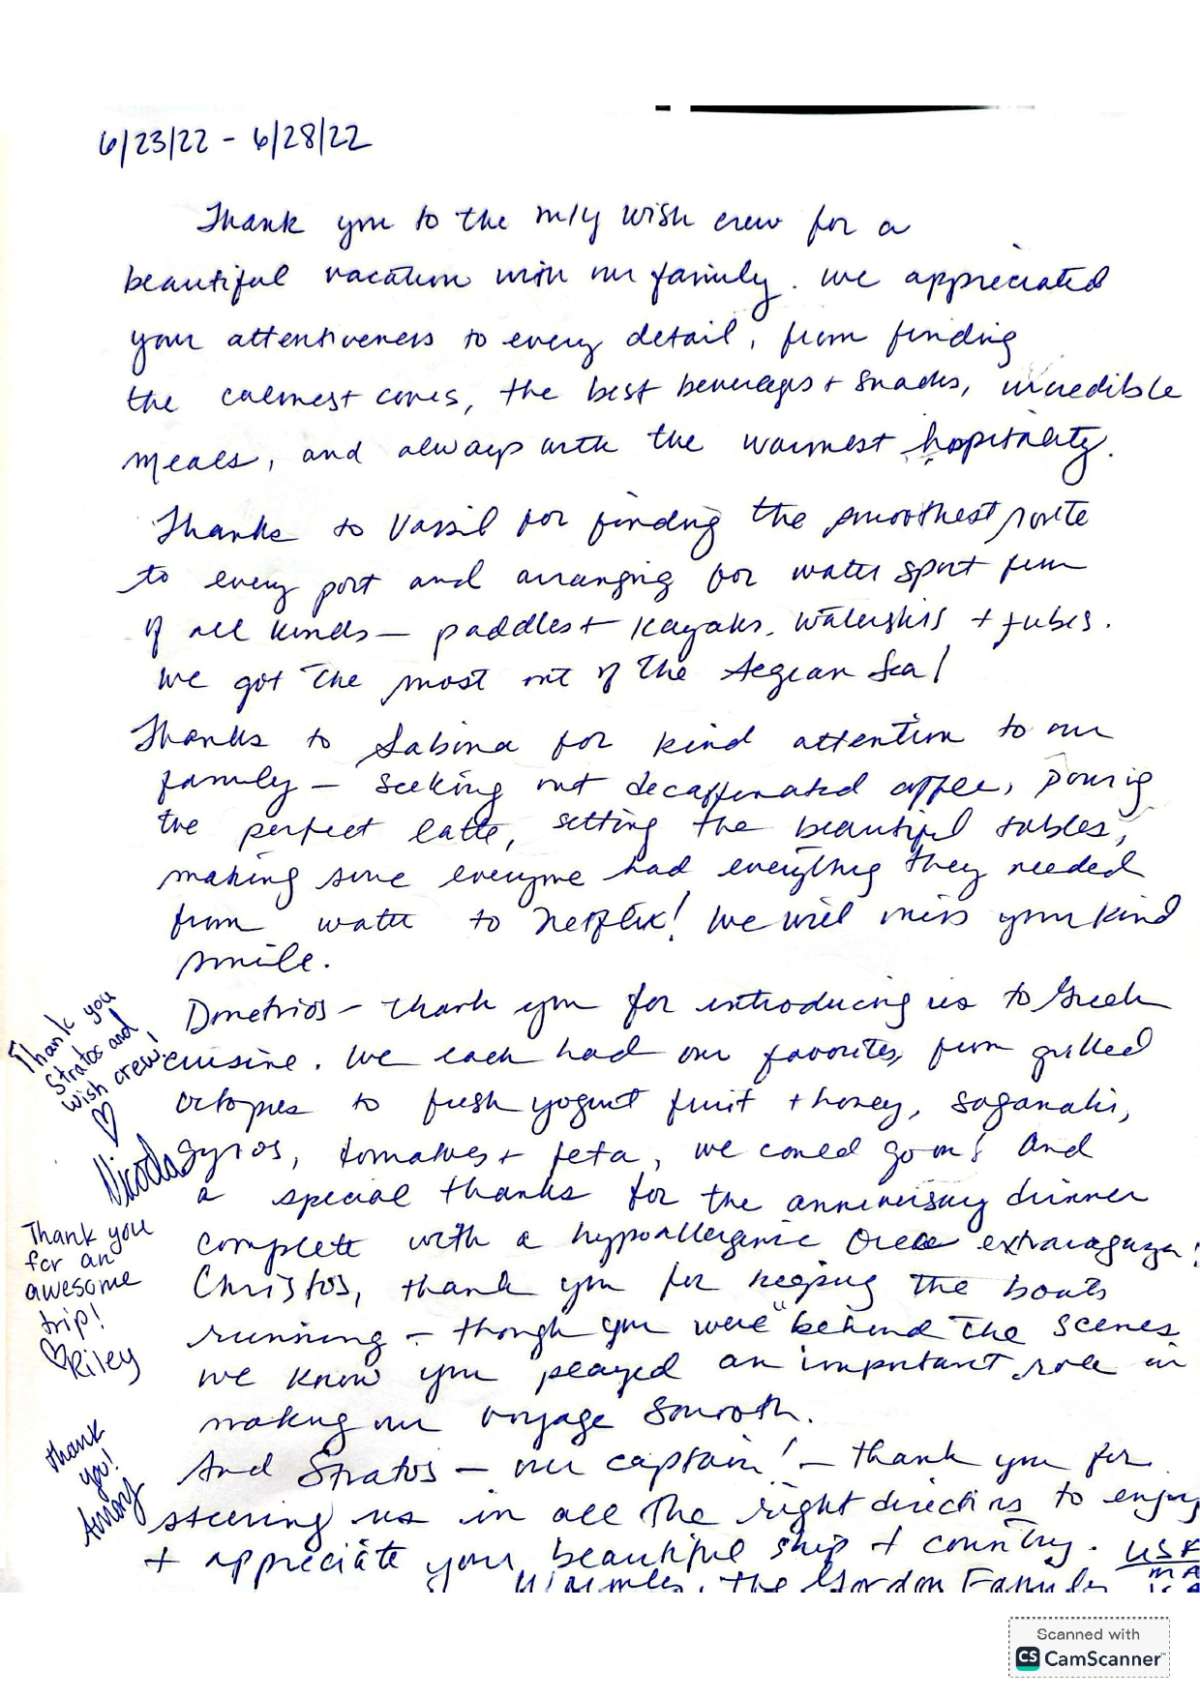 6/23/22 - 6/28/22
Thank you to the m/y Wish crew for a
beautiful vacation with our family. We appreciated
your attentiveness to every detail, from finding
the calmest coves, the best beverages + snacks, incredible
meals, and always with the warmest hospitality.
Thanks to Vassil for finding the smoothest route
to every port and arranging for water sport fun
of all kinds - paddles + kayaks, waterskis + tubes.
We got the most out of the Aegean Sea!
Thanks to Sabina for kind attention to our
family - seeking out decaffeinated coffee, pouring
the perfect latte, setting the beautiful tables,
making sure everyone had everything they needed
from water to Netflix! We will miss your kind
smile.
Dmetrios - thank you for introducing us to Greek
cuisine. We each had our favorites, from grilled
octopus to fresh yogurt fruit + honey, saganaki,
gyros, tomatoes + feta, we could go on! And
a special thanks for the anniversary dinner
complete with a hypoallergenic extravaganza!
Christos, thank you for keeping the boats
running - though you were "behind the scenes
we know you played an important role in
making our voyage smooth.
And Stratos - our captain! - thank you for
steering us in all the right directions to enjoy
+ appreciate your beautiful ship + country.
The Gordon Family
USA
MA
Thank you
Stratos and
Wish crew!
♡
Nicola
Thank you
for an
awesome
trip!
♡Riley
Thank
you!